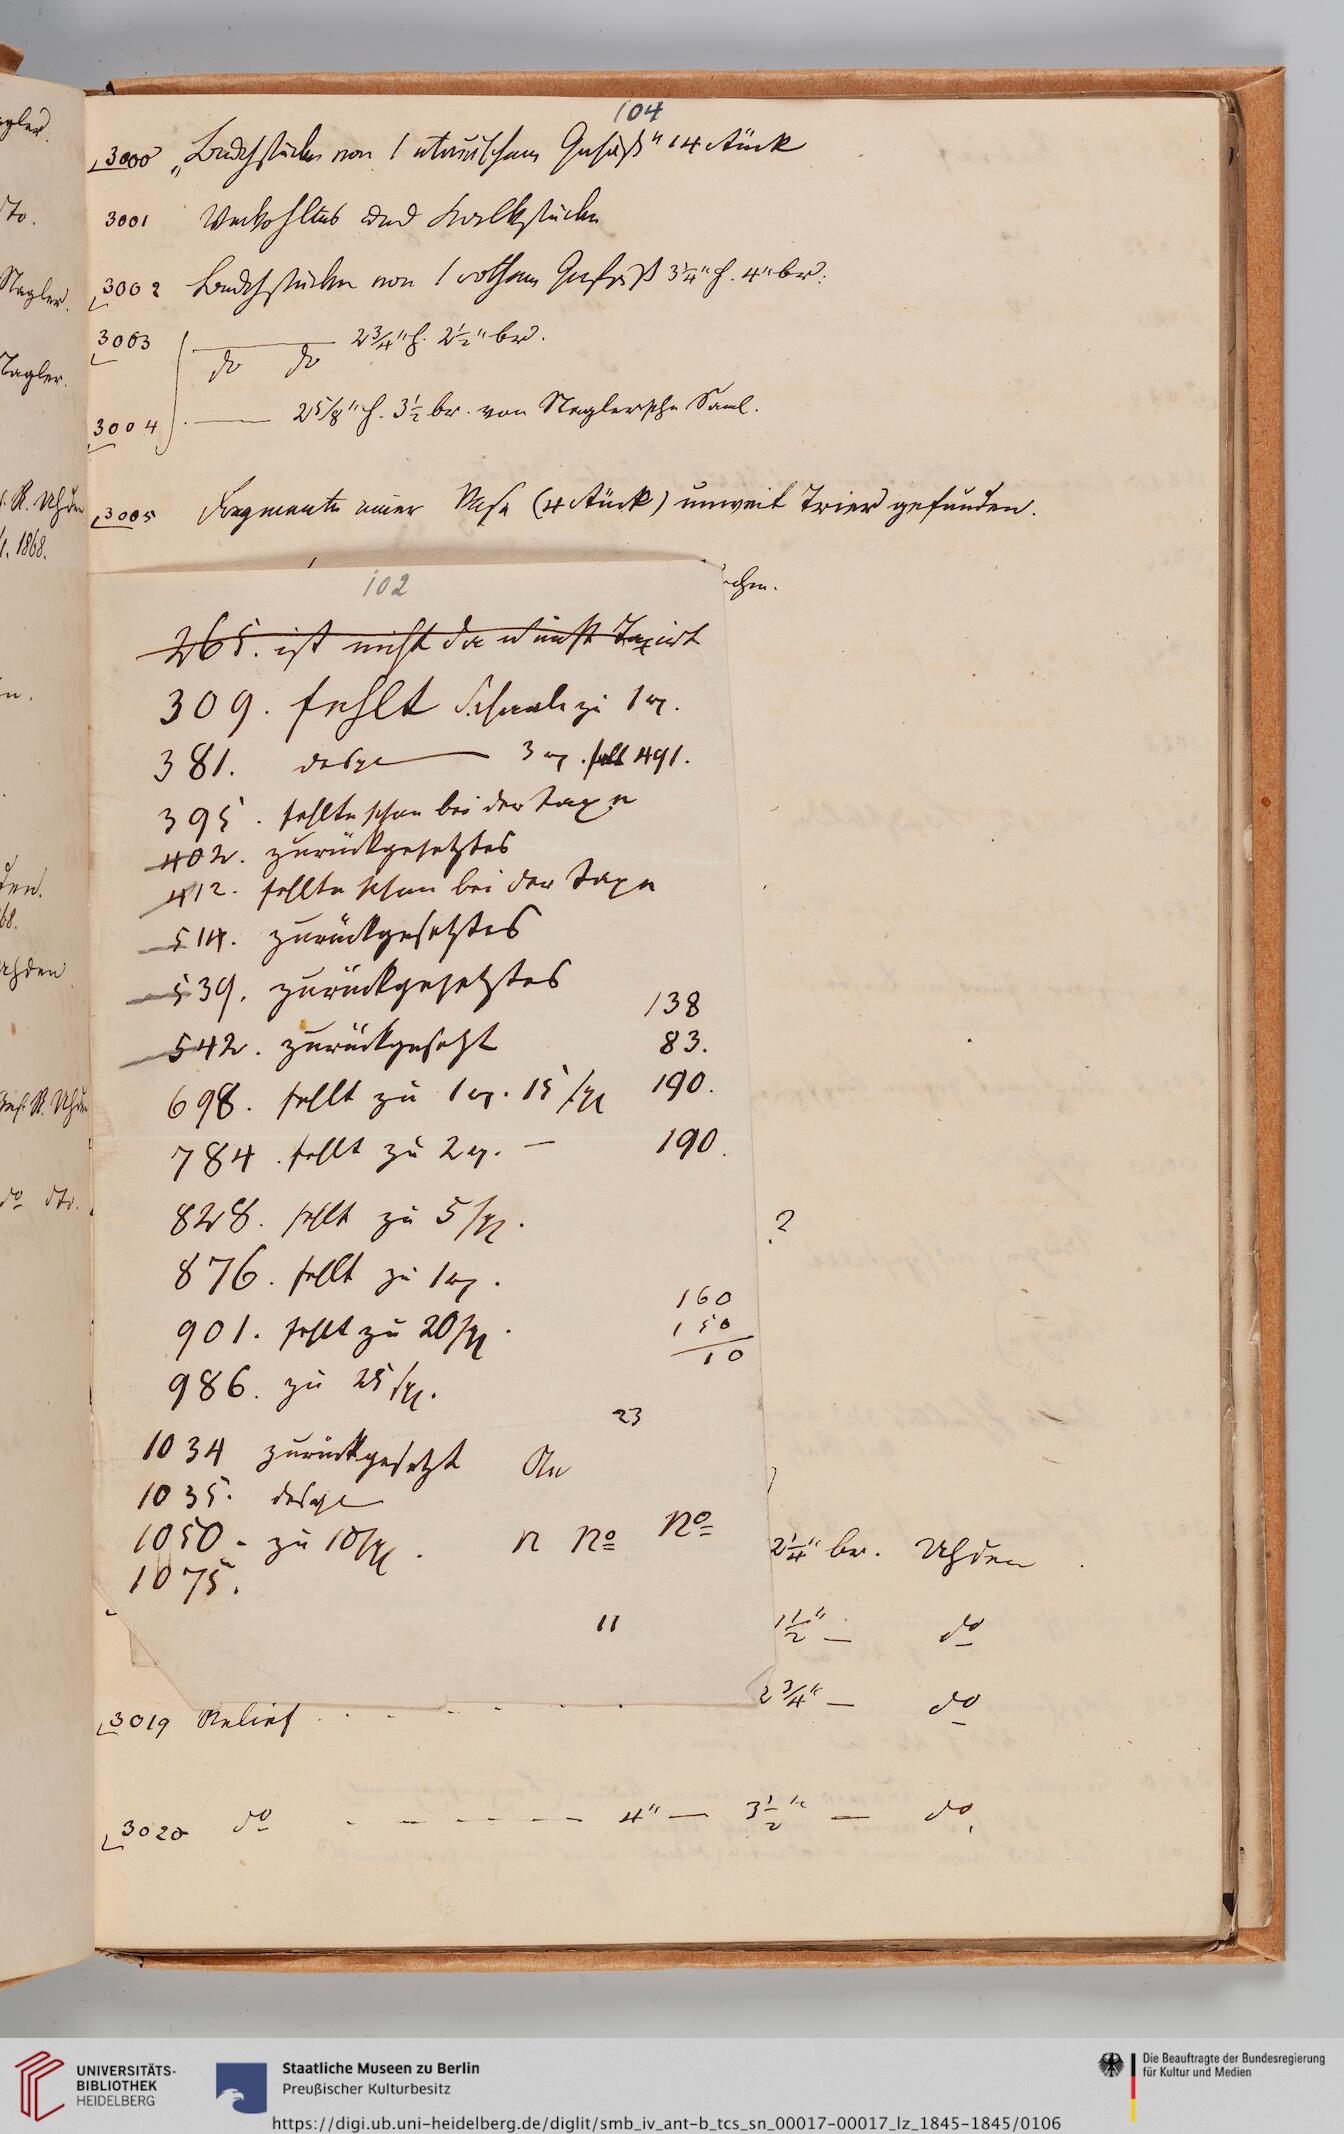 104
3000 „Bruchstücke von 1 etrurischem Gefäß“ 14 Stück
3001 Verkohltes und Kalkstücke
3002 Bruchstücke von 1 rothem Gefäß 3¼" h. 4" br.
3003 do do 2¾" h. 2½" br.
3004 2⅝" h. 3½ br. von Naglersche Saml.
3005 Fragmente einer Vase (4 Stück) unweit Trier gefunden.
chen.
102
265. ist nicht da taxirt
309. fehlt Schaale zu 1
381. desgl 3 fehlt 491.
395. fehlte schon bei der Taxe
402. zurückgesetztes
412. fehlte schon bei der Taxe
514. zurückgesetztes
539. zurückgesetztes
138
542. zurückgesetzt 83.
698. fehlt zu 1 15 190.
784. fehlt zu 2 — 190.
828. fehlt zu 5
?
876. fehlt zu 1
160
901. fehlt zu 20 150
10
986. zu 25
23
1034 zurückgesetzt An
1035. desgl
1050. zu 10 n No No
1075.
11
2¼" br. Uhden
1½" — do
2¾" — do
3019 Relief
3020 do 4" — 3½" — do
agler.
dto.
Nagler.
Nagler.
R. Uhden
1868.
n.
den.
68.
Uhden
R. Uhden
do dto.
UNIVERSITÄTS-
BIBLIOTHEK
HEIDELBERG
Staatliche Museen zu Berlin
Preußischer Kulturbesitz
Die Beauftragte der Bundesregierung
für Kultur und Medien
https://digi.ub.uni-heidelberg.de/diglit/smb_iv_ant-b_tcs_sn_00017-00017_lz_1845-1845/0106